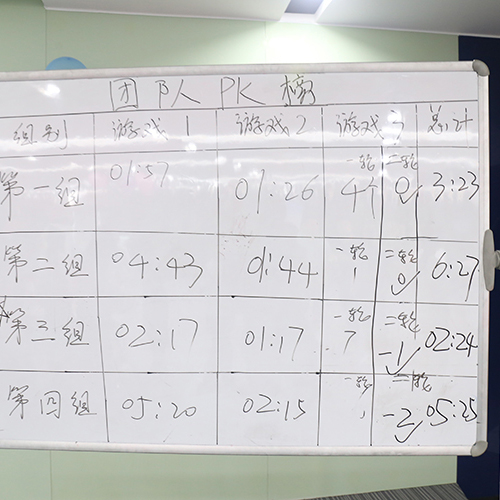 团队 PK 榜
组别 游戏1 游戏2 游戏3 总计
一轮 二轮
第一组 01:57 01:26 4个 0 3:23
一轮 二轮
第二组 04:43 01:44 1 0 6:27
一轮 二轮
第三组 02:17 01:17 7 -1 02:24
一轮 二轮
第四组 05:20 02:15 1 -2 05:25